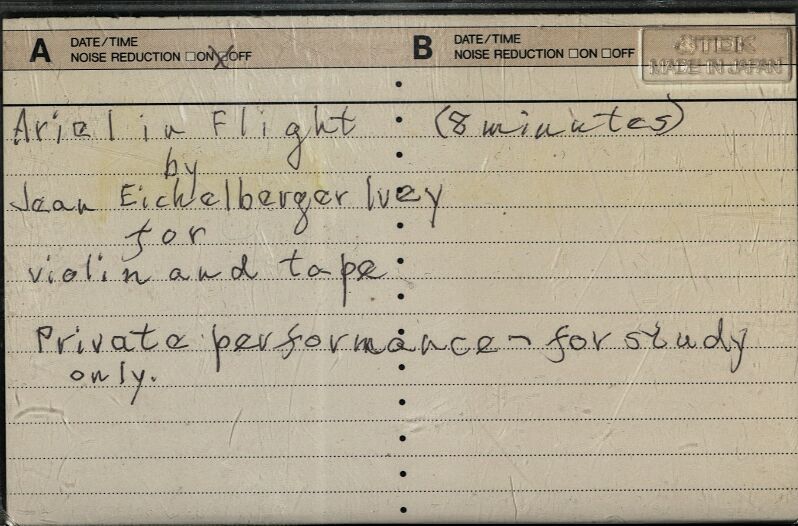 A DATE/TIME
NOISE REDUCTION □ON ☒OFF
B DATE/TIME
NOISE REDUCTION □ON □OFF
TDK
MADE IN JAPAN
Ariel in Flight (8 minutes)
by
Jean Eichelberger Ivey
for
violin and tape
Private performance - for study
only.